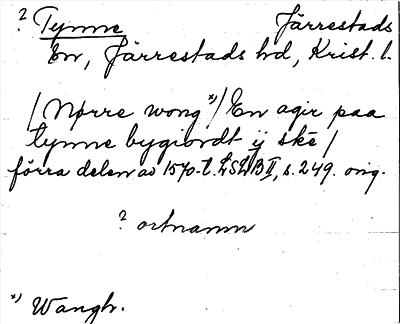 ? Tynne Järrestads
En, Järrestads hd, Krist. l.
/ Nørre wong *) / En agir paa
tynne bygiordt ij skē /
förra delen av 1570-t. LSLB II, s. 249. orig.
? ortnamn
*) Wangh.